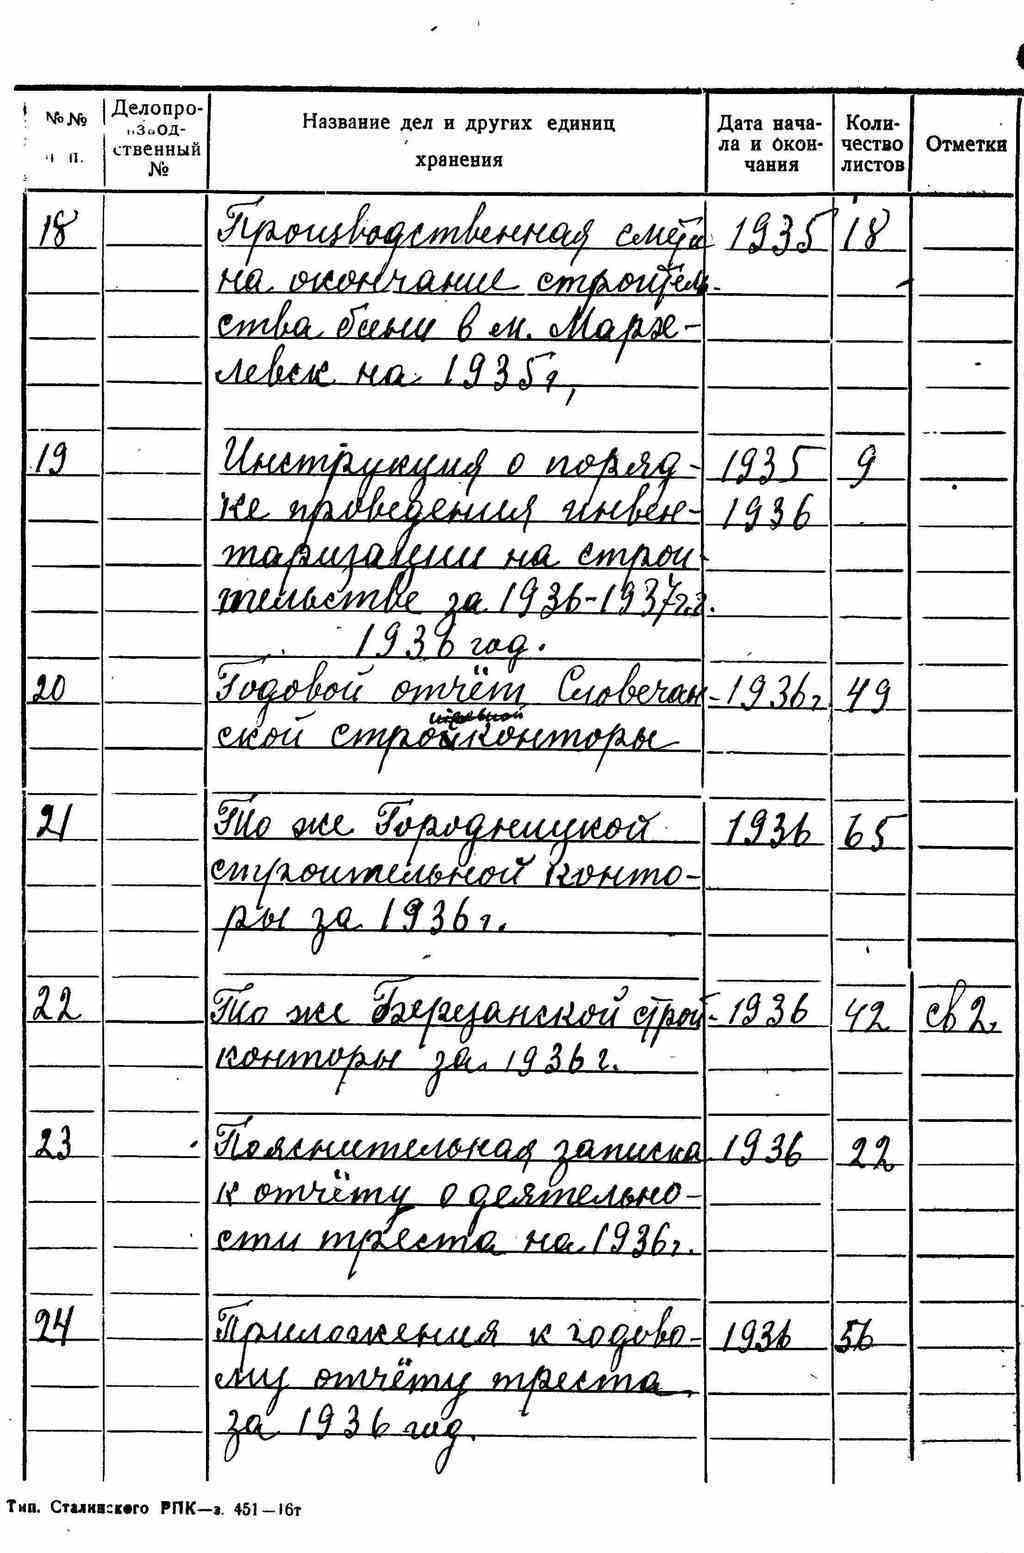 №№ п. Делопроизводственный № Название дел и других единиц хранения Дата начала и окончания Количество листов Отметки
18 Производственная смета 1935 18
на окончание строитель-
ства бани в м. Мархе-
левск на 1935г,
19 Инструкция о поряд- 1935 9
ке проведения инвен- 1936
таризации на строи-
тельстве за 1936-1937г.г.
1936 год.
20 Годовой отчёт Словечан- 1936г 49
ской стройконторы
21 То же Городницкой 1936 65
строительной конто-
ры за 1936г.
22 То же Березанской строй- 1936 42 св 2.
конторы за 1936г.
23 Пояснительная записка 1936 22
к отчёту о деятельно-
сти треста на 1936г.
24 Приложения к годово- 1936 56
му отчёту треста
за 1936 год.
Тип. Сталинского РПК—з. 451—16т